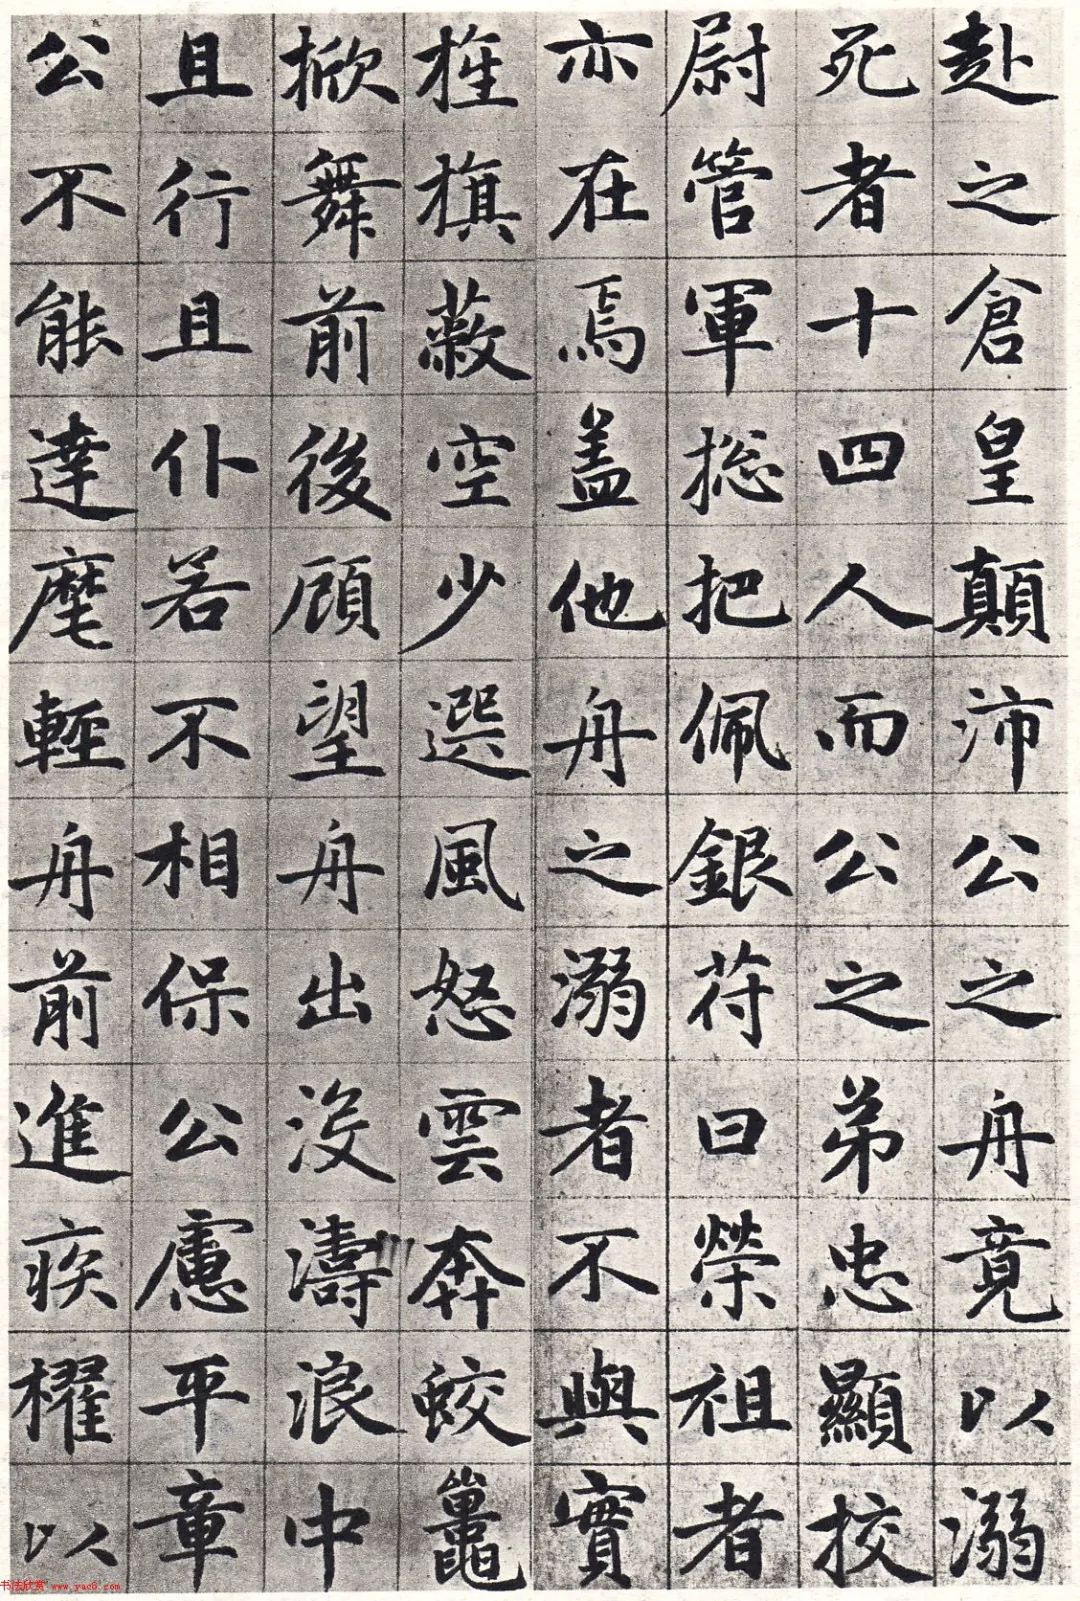 赴之倉皇顛沛公之舟竟以溺
死者十四人而公之弟忠顯挍
尉管軍捴把佩銀苻曰榮祖者
亦在焉盖他舟之溺者不與實
旌旗蔽空少選風怒雲奔蛟鼉
掀舞前後顧望舟出没濤浪中
且行且仆若不相保公慮平章
公不能達麾輕舟前進疾櫂以
书法欣赏 www.yac8.com